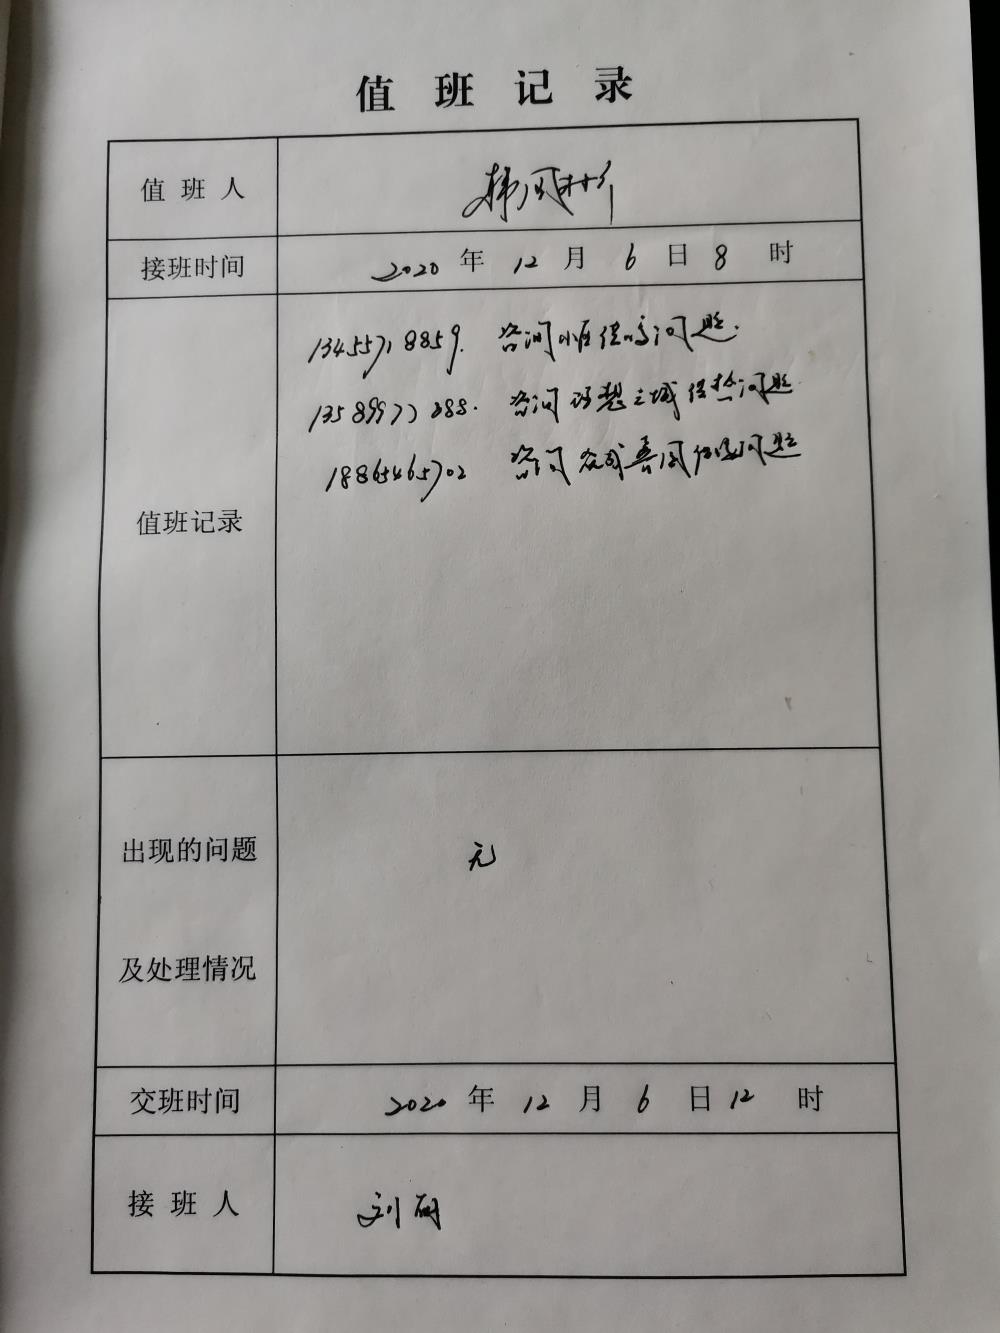 值班记录
值班人
接班时间 2020年12月6日8时
13455718859. 咨询小区供的问题.
13589977288. 咨询理想之城供热问题
18865465702 咨询 问题
值班记录
出现的问题 无
及处理情况
交班时间 2020年12月6日12时
接班人 刘